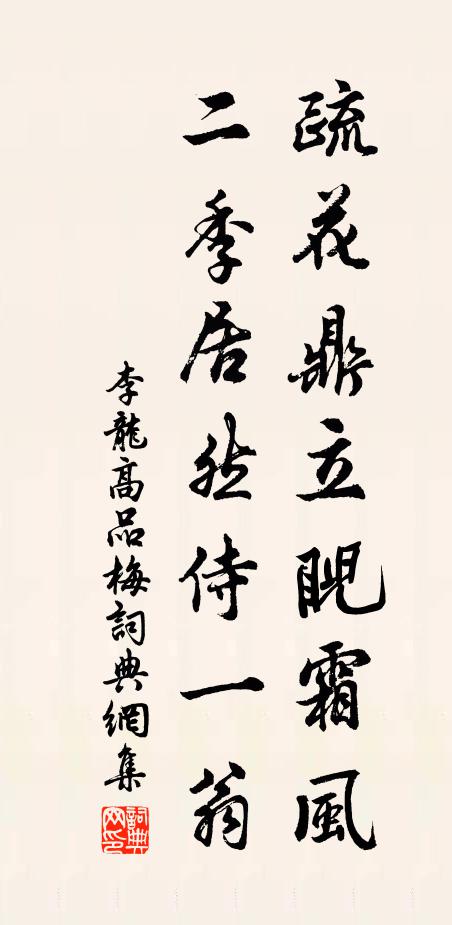 疏花鼎立睨霜風
二季居然侍一翁
李龍高品梅詞典網集
詞典網印